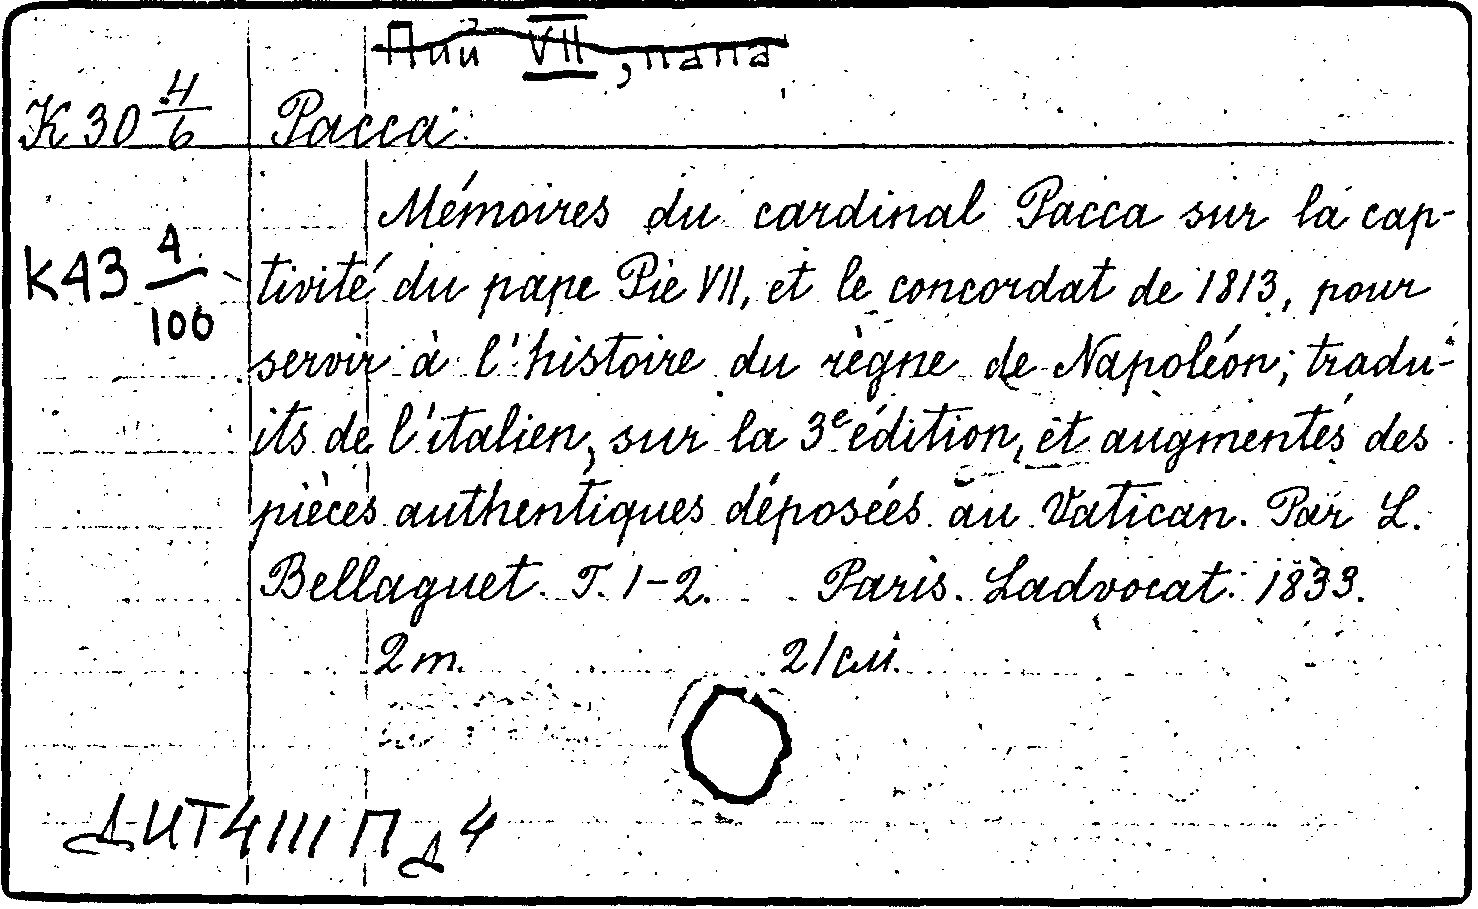 Пий VII, папа
К 30 4/6 Pacca.
Mémoires du cardinal Pacca sur la cap-
К43 4/100
tivité du pape Pie VII, et le concordat de 1813, pour
servir à l'histoire du règne de Napoléon; tradu-
its de l'italien, sur la 3e édition, et augmentés des
pièces authentiques déposées au Vatican. Par L.
Bellaguet. T. 1-2. Paris. Ladvocat. 1833.
2 т. 21 см.